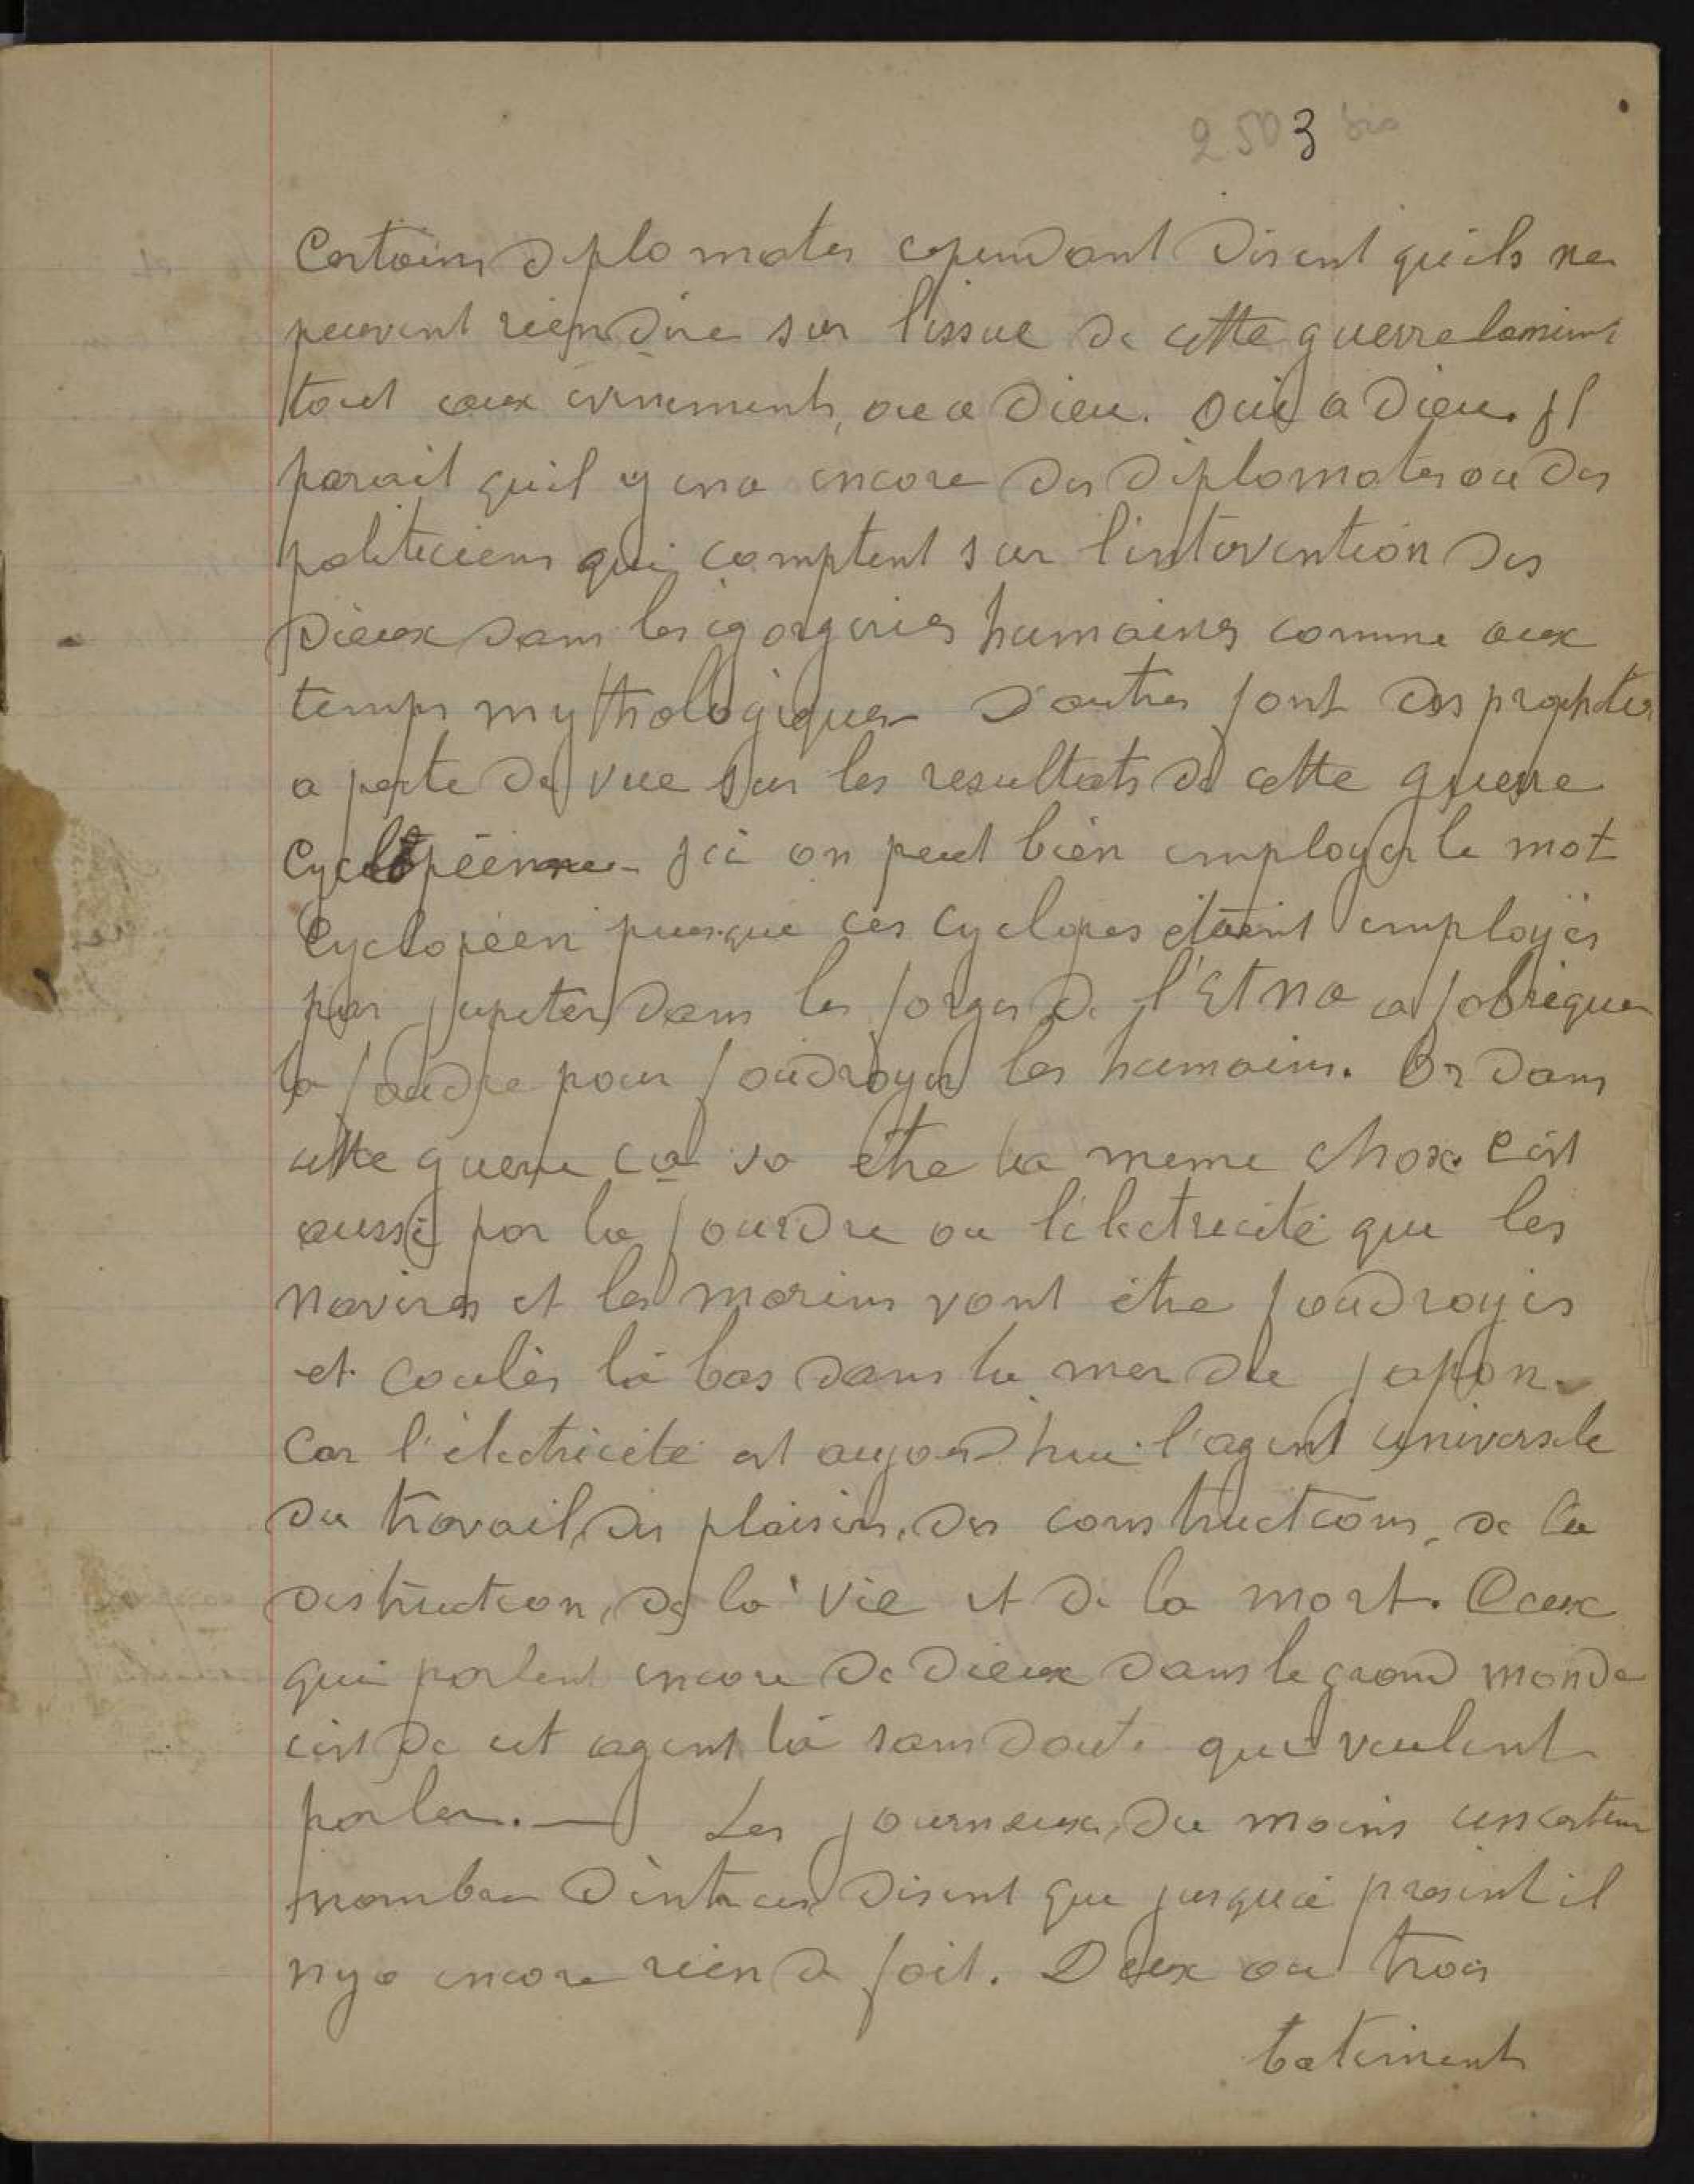 2503 bis
Certains diplomates cependant disent qu'ils ne
peuvent rien dire sur l'issue de cette guerre laissant
tout aux evenements, ou a Dieu. Oui a Dieu. Il
parait qu'il y en a encore des diplomates ou des
politiciens qui comptent sur l'intervention des
Dieux dans les egorgeries humaines comme aux
temps mythologiques D'autres font des propheties
a perte de vue sur les resultats de cette guerre
Cyclopéenne Ici on peut bien employer le mot
Cyclopéen puisque ces Cyclopes étaient employés
par Jupiter dans les forges de l'Etna a fabriquer
la foudre pour foudroyer les humains. Or dans
cette guerre ça va etre la meme chose c'est
aussi par la foudre ou l'électricité que les
navires et les marins vont être foudroyés
et coulés là bas dans la mer du Japon.
Car l'électricité est aujourd'hui l'agent universele
du travail, des plaisirs, des constructions, de la
destruction, de la vie et de la mort. Ceux
qui parlent encore de Dieux dans le grand monde
c'est de cet agent là sans doute qui veulent
parler. — Les journaux, du moins un certain
nombre d'entre eux disent que jusqu'à présent il
n'y a encore rien de fait. Deux ou trois
batiments